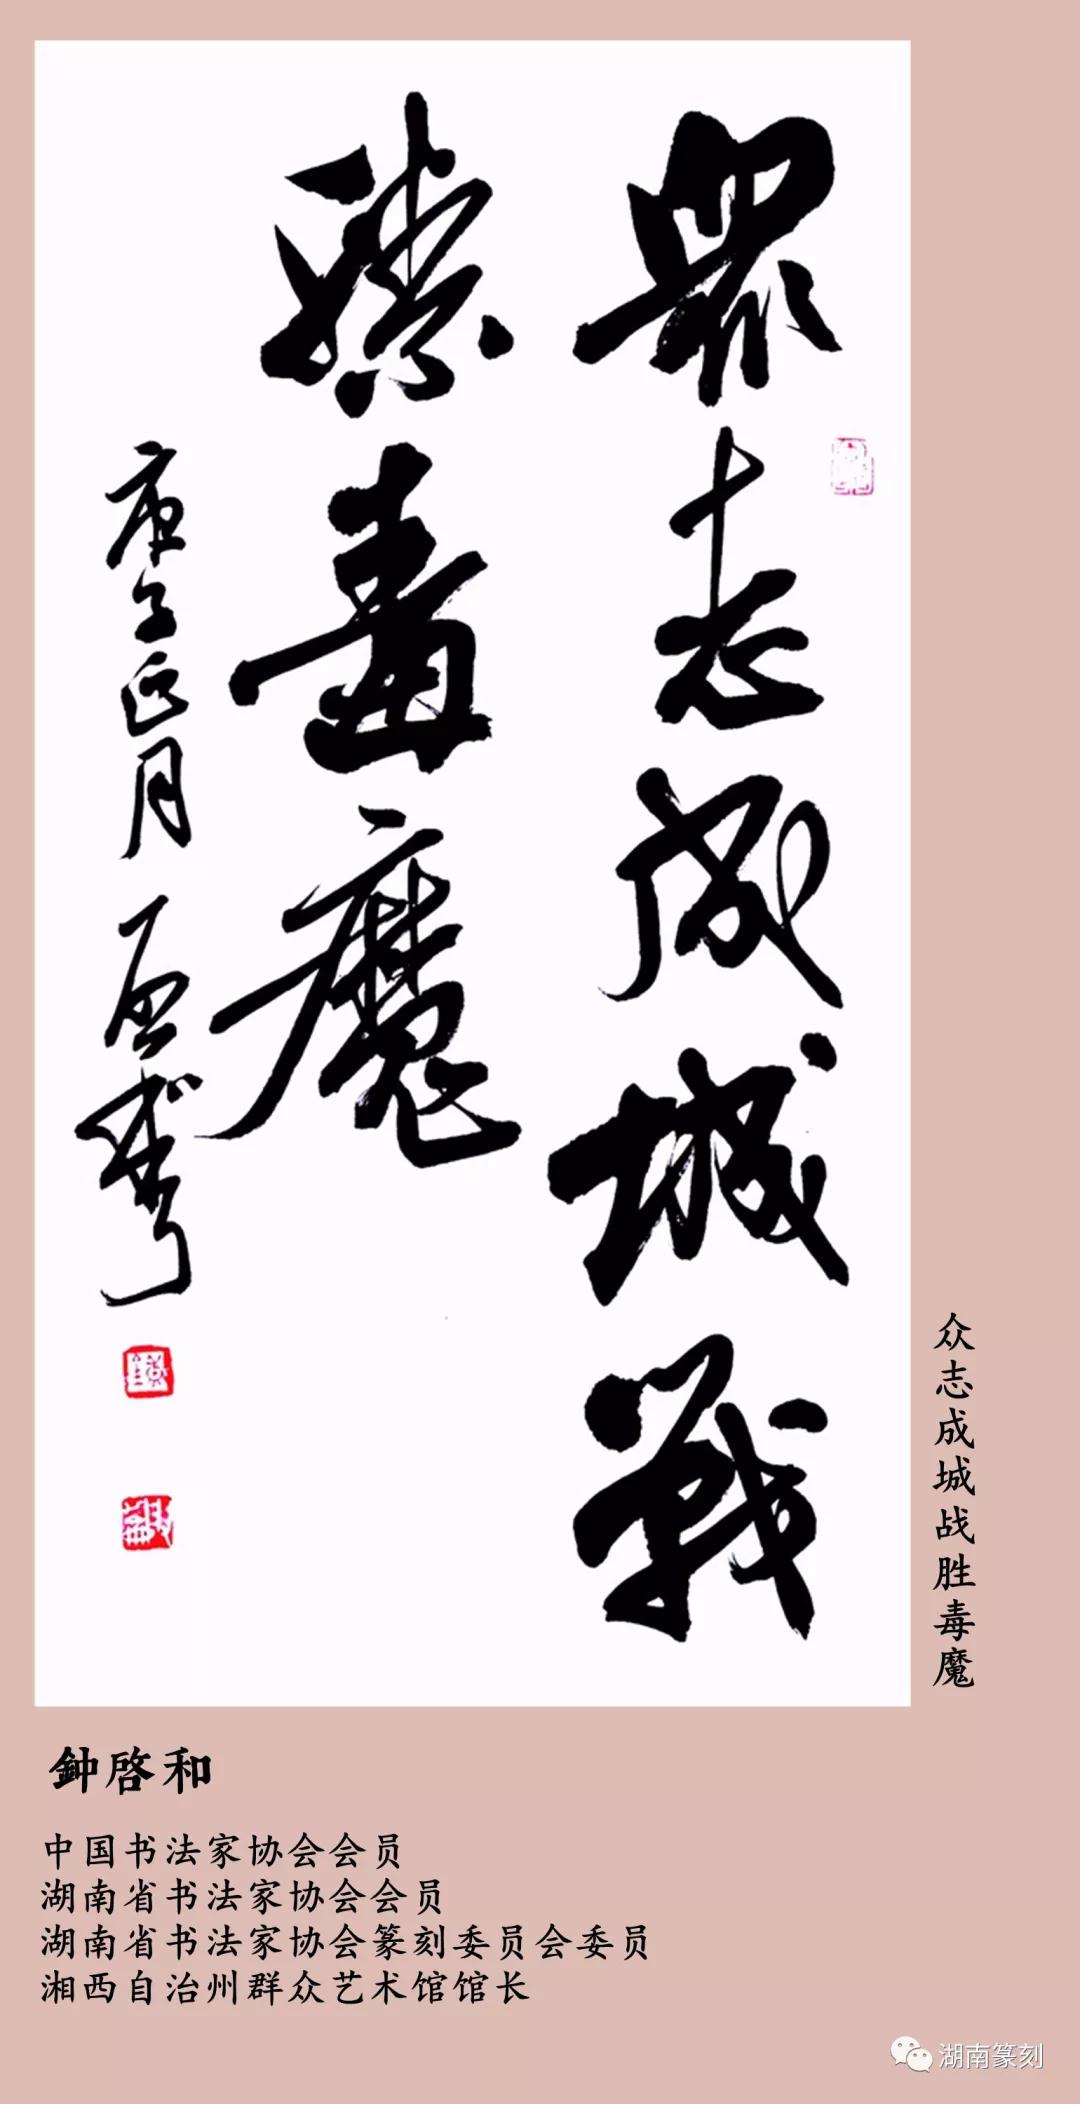 眾志成城戰
勝毒魔
庚子正月
众志成城战胜毒魔
鈡啓和
中国书法家协会会员
湖南省书法家协会会员
湖南省书法家协会篆刻委员会委员
湘西自治州群众艺术馆馆长
湖南篆刻